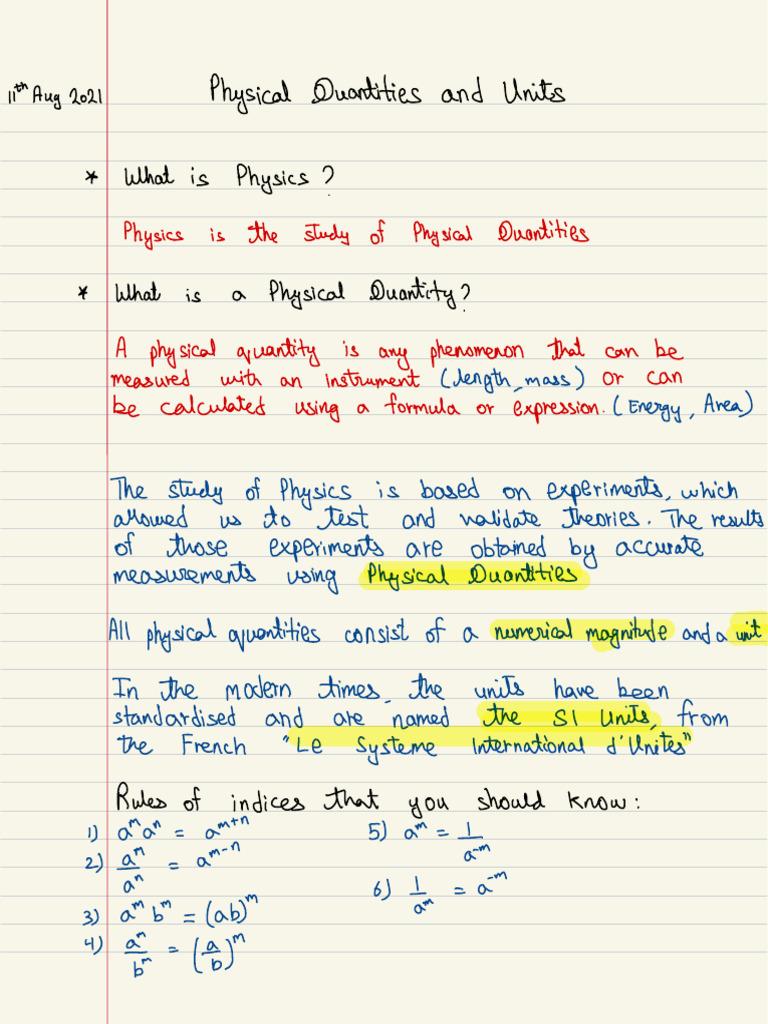 11th Aug 2021
Physical Quantities and Units
* What is Physics?
Physics is the study of Physical Quantities
* What is a Physical Quantity?
A physical quantity is any phenomenon that can be
measured with an instrument (length, mass) or can
be calculated using a formula or expression. (Energy, Area)
The study of Physics is based on experiments, which
allowed us to test and validate theories. The results
of those experiments are obtained by accurate
measurements using Physical Quantities
All physical quantities consist of a numerical magnitude and a unit
In the modern times, the units have been
standardised and are named the SI Units, from
the French "Le Systeme International d'Unites"
Rules of indices that you should know:
1) a^m a^n = a^(m+n)
2) a^m / a^n = a^(m-n)
3) a^m b^m = (ab)^m
4) a^m / b^m = (a/b)^m
5) a^m = 1 / a^-m
6) 1 / a^m = a^-m